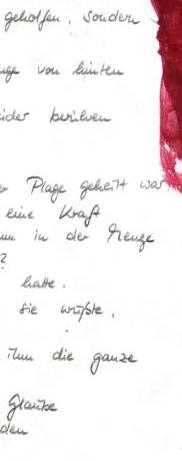 geholfen, sondern
nge von hinten
eider berühren
er Plage geheilt war
eine Kraft
nn in der Menge
?
hatte.
sie wußte,
ihm die ganze
Glaube
den